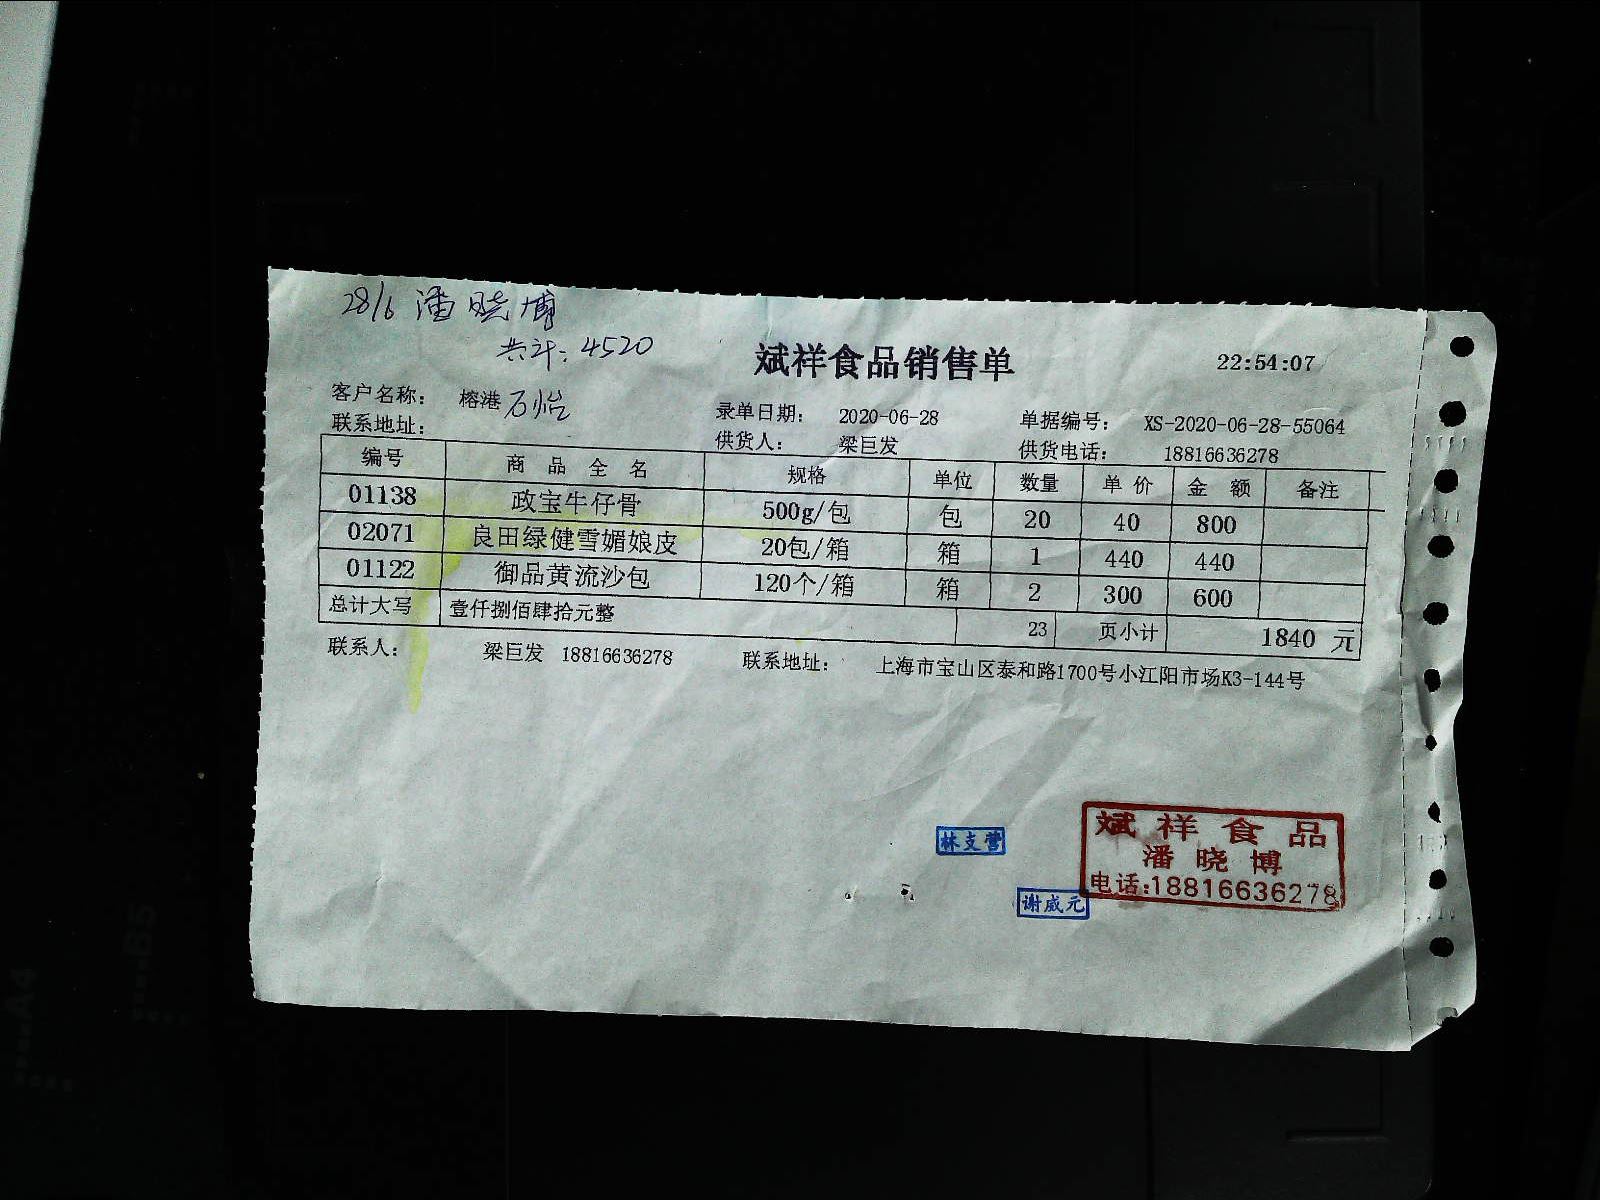 28/6 潘晓博
共计：4520
斌祥食品销售单 22:54:07
客户名称： 榕港 石怡 录单日期： 2020-06-28 单据编号： XS-2020-06-28-55064
联系地址： 供货人： 梁巨发 供货电话： 18816636278
编号 商品全名 规格 单位 数量 单价 金额 备注
01138 政宝牛仔骨 500g/包 包 20 40 800
02071 良田绿健雪媚娘皮 20包/箱 箱 1 440 440
01122 御品黄流沙包 120个/箱 箱 2 300 600
总计大写 壹仟捌佰肆拾元整 23 页小计 1840 元
联系人： 梁巨发 18816636278 联系地址： 上海市宝山区泰和路1700号小江阳市场K3-144号
林支营
斌祥食品
潘晓博
电话:18816636278
谢威元
B5
A4